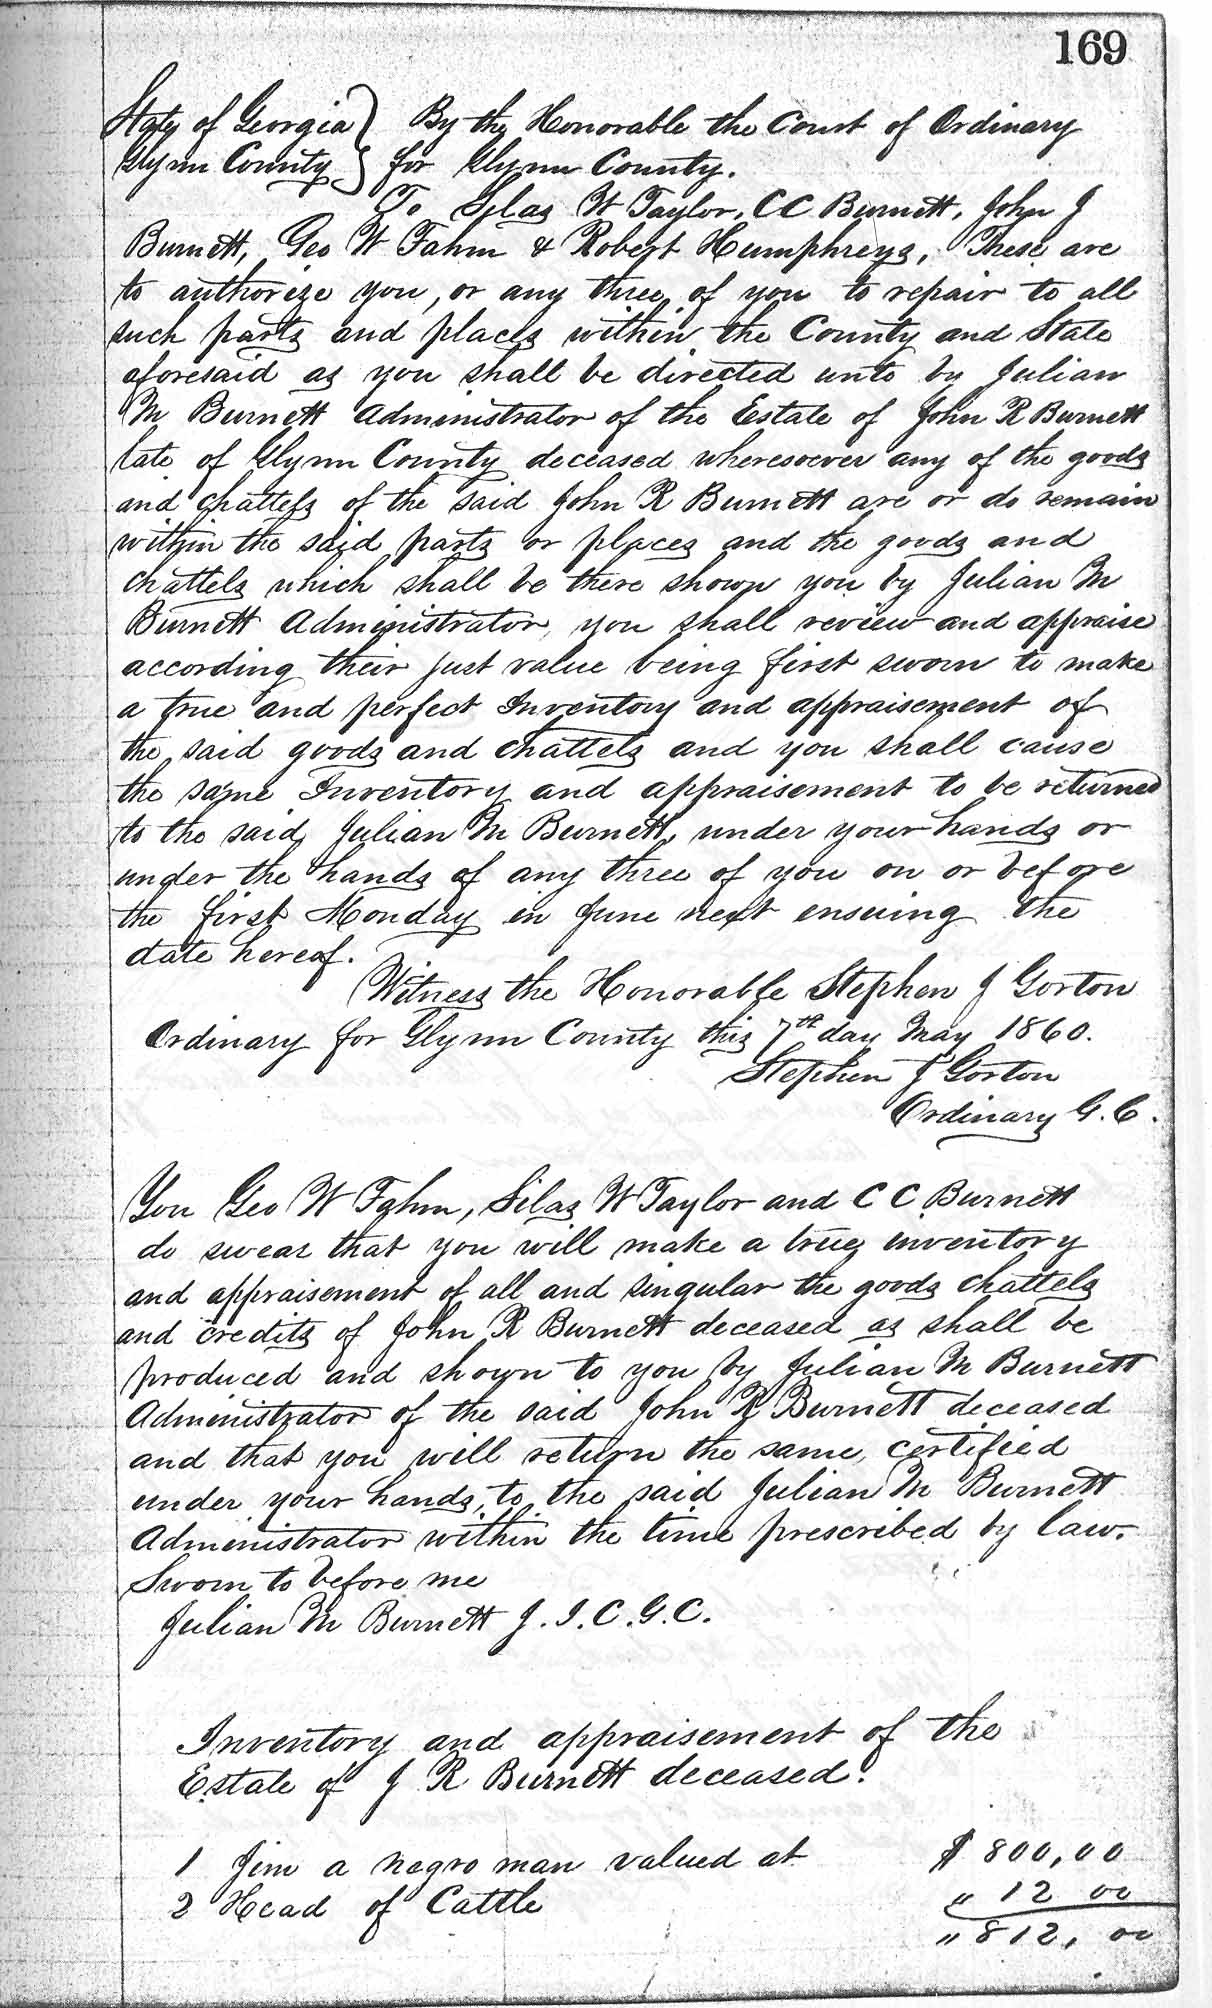 169
State of Georgia } By the Honorable the Court of Ordinary
Glynn County } for Glynn County.
To Silas W Taylor, C C Burnett, John J
Burnett, Geo W Fahm & Robert Humphreys, These are
to authorize you, or any three of you to repair to all
such parts and places within the County and State
aforesaid as you shall be directed unto by Julian
M Burnett Administrator of the Estate of John R Burnett
late of Glynn County deceased wheresoever any of the goods
and chattels of the said John R Burnett are or do remain
within the said parts or places and the goods and
chattels which shall be there shown you by Julian M
Burnett Administrator, you shall review and appraise
according their just value being first sworn to make
a true and perfect Inventory and appraisement of
the said goods and chattels and you shall cause
the same Inventory and appraisement to be returned
to the said Julian M Burnett, under your hands or
under the hands of any three of you on or before
the first Monday in June next ensuing the
date hereof.
Witness the Honorable Stephen J Gorton
Ordinary for Glynn County this 7th day May 1860.
Stephen J Gorton
Ordinary G. C.
You Geo W Fahm, Silas W Taylor and C C Burnett
do swear that you will make a true inventory
and appraisement of all and singular the goods chattels
and credits of John R Burnett deceased as shall be
produced and shown to you by Julian M Burnett
Administrator of the said John R Burnett deceased
and that you will return the same, certified
under your hands, to the said Julian M Burnett
Administrator within the time prescribed by law.
Sworn to before me
Julian M Burnett J. I. C. G. C.
Inventory and appraisement of the
Estate of J R Burnett deceased.
1 Jim a negro man valued at $ 800,00
2 Head of Cattle " 12 00
" 812, 00